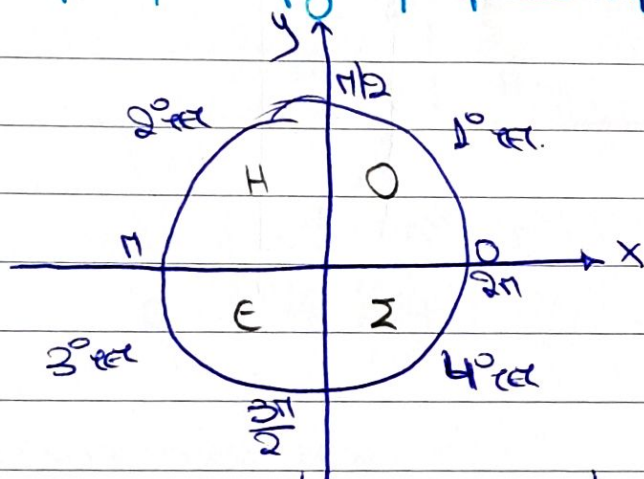 y
π/2
2° τετ
1° τετ.
Η Ο
π Ο x
2π
Ε Σ
3° τετ
4° τετ
3π
2